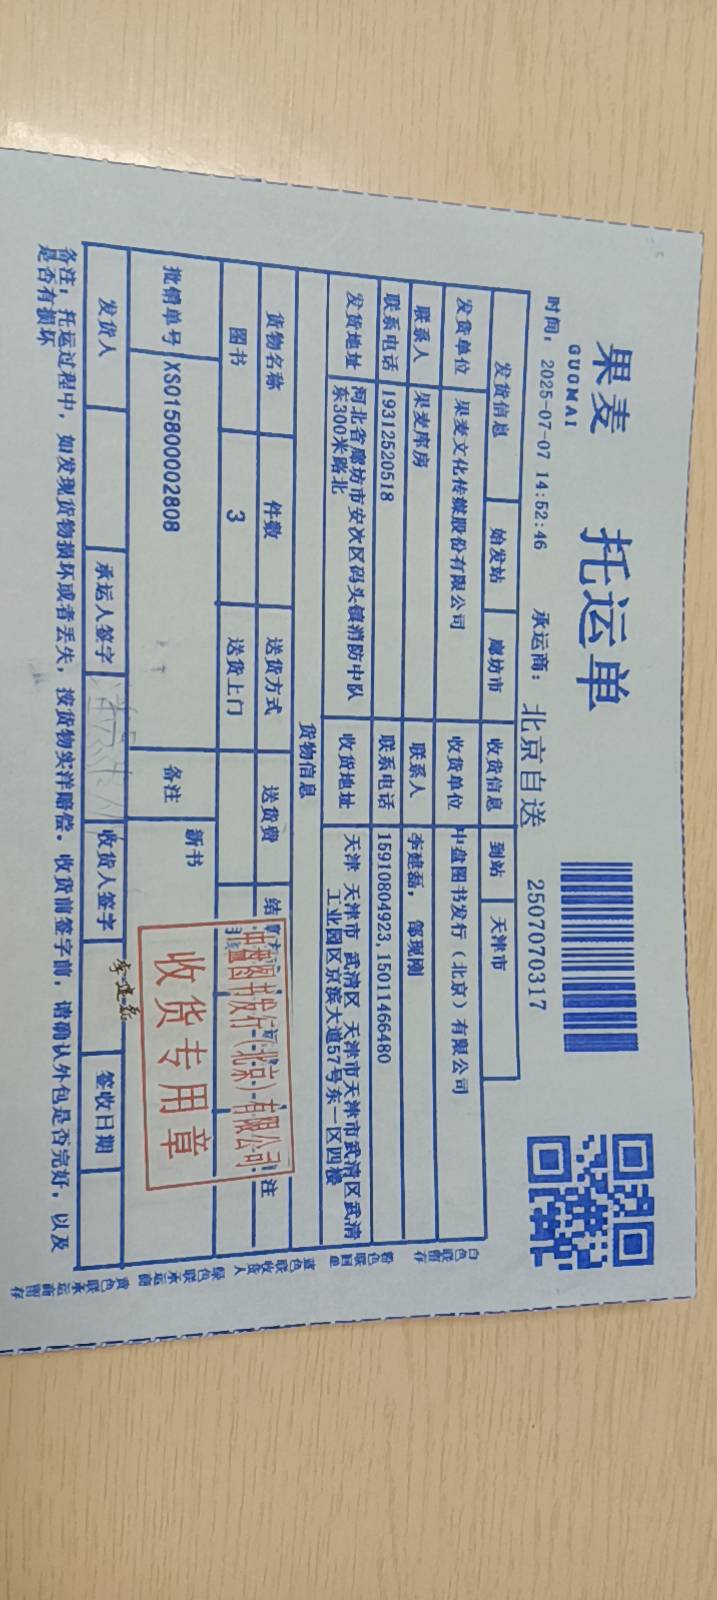 果麦
GUOMAI
托运单
时间: 2025-07-07 14:52:46 承运商: 北京自送 2507070317
发货信息 始发站 廊坊市 收货信息 到站 天津市
发货单位 果麦文化传媒股份有限公司 收货单位 中盘图书发行(北京)有限公司
联系人 果麦库房 联系人 李建磊, 邹现刚
联系电话 19312520518 联系电话 15910804923,15011466480
发货地址 河北省廊坊市安次区码头镇消防中队
东300米路北
收货地址 天津 天津市 武清区 天津市天津市武清区武清
工业园区京滨大道57号东一区四楼
货物信息
货物名称 件数 送货方式 送货费 结 注
图书 3 送货上门
批销单号 XS015800002808 备注 新书
中盘图书发行(北京)有限公司
收货专用章
发货人 承运人签字 收货人签字 李建磊 签收日期
备注: 托运过程中, 如发现货物损坏或者丢失, 按货物实洋赔偿。收货前签字前, 请确认外包是否完好, 以及
是否有损坏
白色联留存
粉色联回单
蓝色联收货人
绿色联承运商
黄色联承运商留存